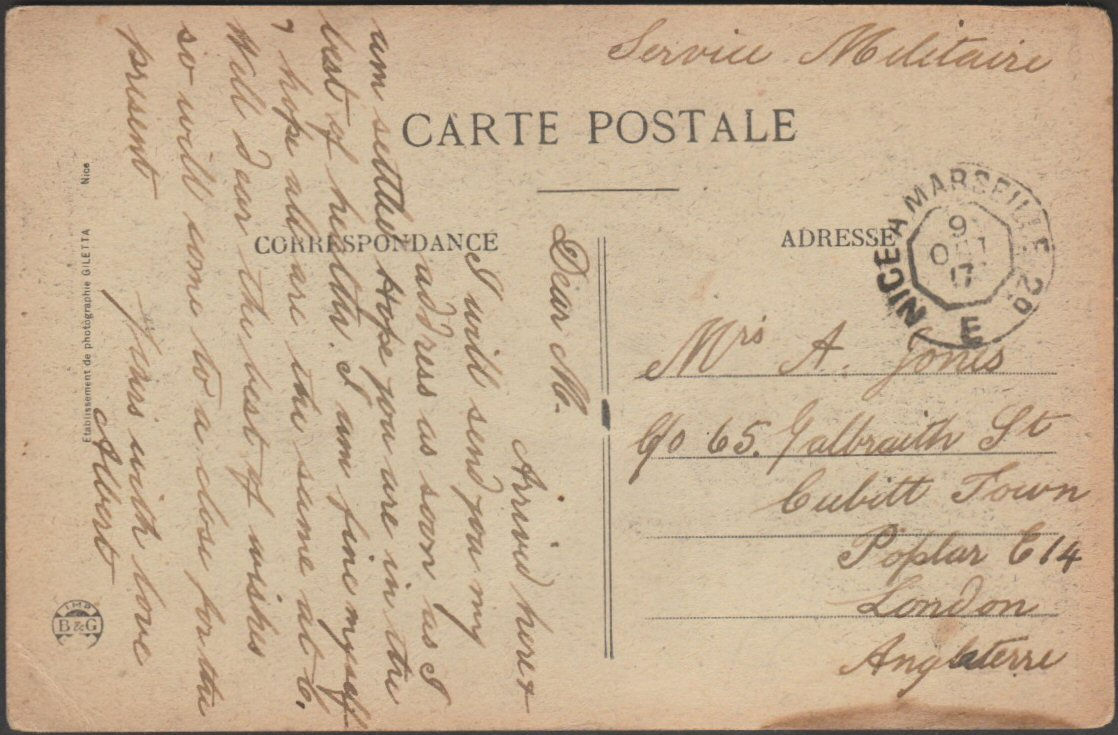 Service Militaire
CARTE POSTALE
CORRESPONDANCE
ADRESSE
NICE A MARSEILLE 2º
9
OCT
17
E
Dear M.
Arrived here &
I will send you my
address as soon as I
um settled Hope you are in the
best of health. I am fine myself
& hope all are the same at 6.
Well Dear the best of wishes
so will come to a close for the
present
Yours with love
Albert
Mrs A. Jones
C/o 65. Galbraith St
Cubitt Town
Poplar E14
London
Angleterre
Etablissement de photographie GILETTA Nice
IMP
B&G